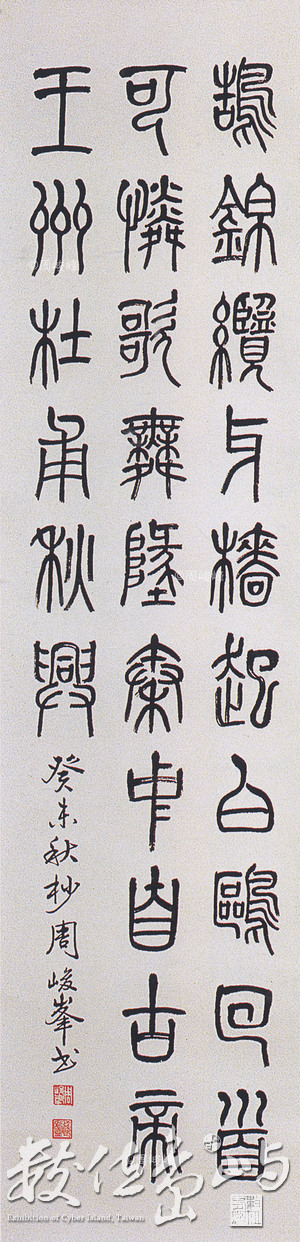 鵠錦纜牙檣起白鷗回首
可憐歌舞墬秦中自古帝
王州杜甫秋興
癸未秋杪周峻峯書
數位島嶼
Exhibition of Cyber Island, Taiwan